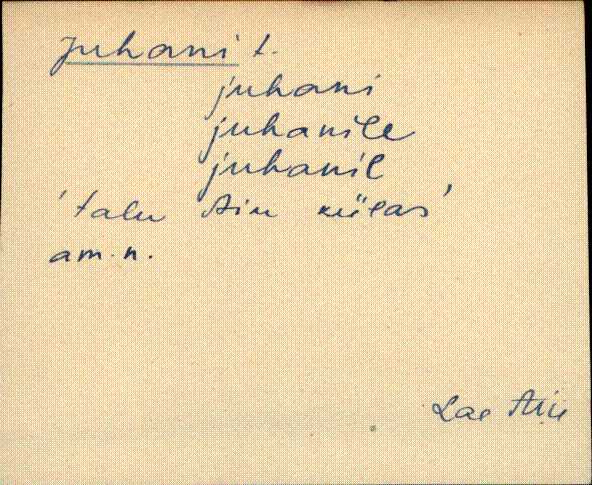 Juhani t.
juhani
juhanile
juhanil
'talu Aiu külas'
am. n.
Lae Aiu